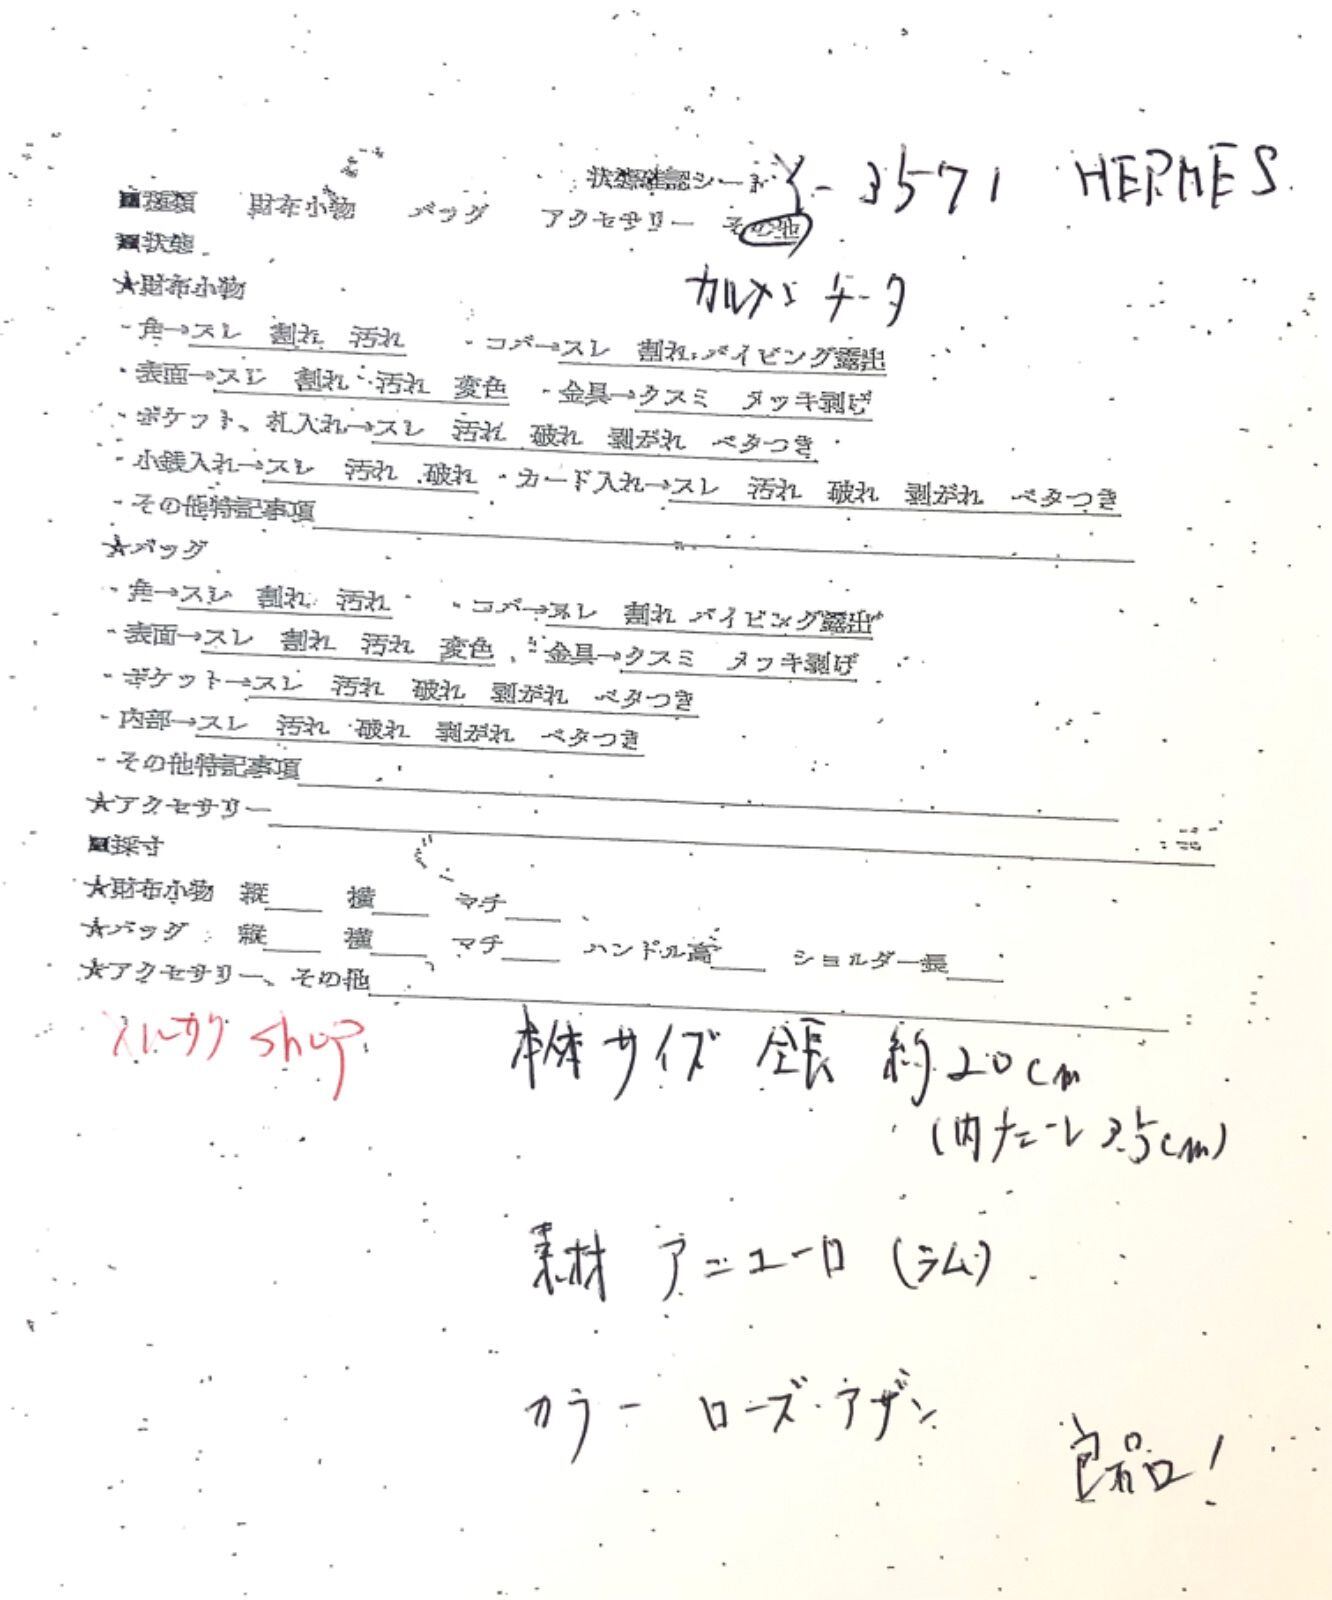 状態確認シート Y-3571 HERMES
■種類 財布小物 バッグ アクセサリー その他
■状態
カルメンチータ
★財布小物
・角→スレ 割れ 汚れ ・コバ→スレ 割れ パイピング露出
・表面→スレ 割れ 汚れ 変色 ・金具→クスミ メッキ剥げ
・ポケット、札入れ→スレ 汚れ 破れ 剥がれ ベタつき
・小銭入れ→スレ 汚れ 破れ ・カード入れ→スレ 汚れ 破れ 剥がれ ベタつき
・その他特記事項
★バッグ
・角→スレ 割れ 汚れ ・コバ→スレ 割れ パイピング露出
・表面→スレ 割れ 汚れ 変色 ・金具→クスミ メッキ剥げ
・ポケット→スレ 汚れ 破れ 剥がれ ベタつき
・内部→スレ 汚れ 破れ 剥がれ ベタつき
・その他特記事項
★アクセサリー
■採寸
★財布小物 縦 横 マチ
★バッグ 縦 横 マチ ハンドル高 ショルダー長
★アクセサリー、その他
shop 本体サイズ 全長 約20cm
(内チャーム 3.5cm)
素材 アニューロ (ラム)
カラー ローズ・アザレ
良品!